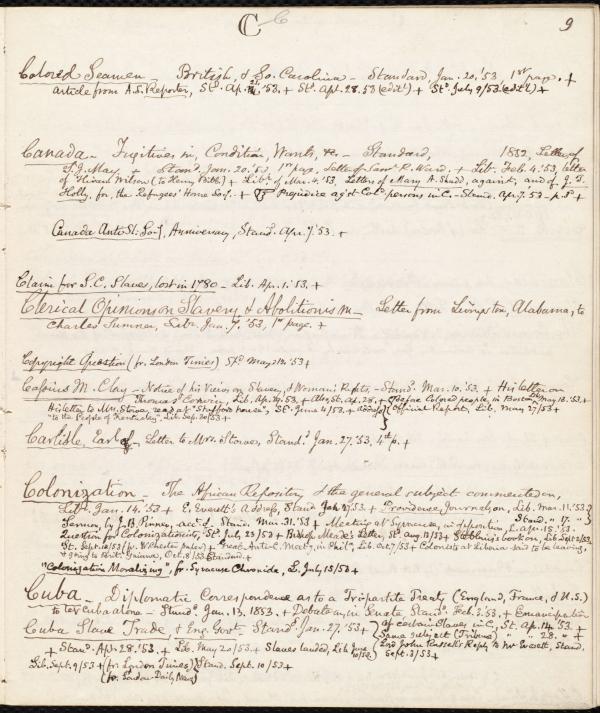 C C 9
Colored Seamen - British, & So. Carolina - Standard, Jan. 20, '53, 1st page. +
article from A.S. Reporter, St. Ap. '53. + St. Apl. 28. 53 (edit.) + St. July 9/53 (edit.) +
Canada - Fugitives in, Condition, Wants, &c. - Standard, 1852, Letter of
S. J. May, + Stand. Jan. 20. '53 1st page, Letter of Saml. R. Ward, + Lib. Feb. 4. '53, letter
of Hiram Wilson (to Henry Bibb) + Lib. of Mar. 4. '53, Letters of Mary A. Shadd, against, and of J. T.
Holly, for, the Refugees' Home Socy. + Prejudice agst Cold persons in C. - Stand. Apr. 7. 53 - p. +
Canada Anti Sl. Socy, Anniversary, Stand. Apr. 7. 53. +
Claim for S.C. Slaves, lost in 1780 - Lib. Apr. 1. '53. +
Clerical Opinions on Slavery & Abolitionism - Letter from Livingston, Alabama, to
Charles Sumner, Libr. Jan. 7. '53, 1st page. +
Copyright Question (fr. London Times) St. May '53 +
Cassius M. Clay - Notice of his Views on Slavery, & Woman's Rights, - Stand. Mar. 10. '53. + His letter on
Thomas Corwin, Lib. Apr. 29. 53 + Also, St. Apr. 28. + Before Colored people, in Boston, May 18. '53 +
His letter to Mrs. Stowe, read at "Stafford House", St. June 4/53, + address Official Report, Lib. May 27/53 +
"to the People of Kentucky", Lib. Sep. 30/53 +
Carlisle, Earl of, Letter to Mrs. Stowe, Stand. Jan. 27. '53, 4th p. +
Colonization - The African Repository & the general subject commented on,
Lib. Jan. 14. '53 + E. Everett's Address, Stand Feb. '53. + Providence Journal on, Lib. Mar. 11. '53
Sermon, by J. B. Pinney, acct. of, Stand. Mar. 31. '53 + Meeting at Syracuse, in opposition, L. Apr. 15. '53. Stand. " 17. " +
Question for Colonizationists, St. July 23/53 + Bishop Meade's Letter, St. Aug. 13/53 + Stebbins's book on, Lib. Sept 2/53,
St. Sept. 10/53 (fr. N. Chester paper) + Great Anti-C. Meetg, in Phila, Lib. Oct. 7/53 + Colonists at Liberia said to be leaving,
& going to British Guiana, Oct. 8/53 Standard. +
"Colonization Moralizing", fr. Syracuse Chronicle, L. July 15/53 +
Cuba - Diplomatic Correspondence as to a Tripartite Treaty (England, France, & U.S.)
to let Cuba alone - Stand. Jan. 13. 1853. + Debate on, in Senate Stand. Feb. 3. 53, + Emancipation
of certain Slaves in C., St. Ap. 14. '53. +
Cuba Slave Trade & Eng. Govt. - Stand. Jan. 27, '53 + Same subject (Tribune) " " 28. " +
+ Stand. Apr. 28. '53. + Lib. May 20/53 + Slaves landed, Lib June 10/53 + Lord John Russell's Reply to Mr Everett, Stand.
Sept. 3/53 +
Lib. Sept. 9/53 + (fr London Times) Stand. Sept. 10/53 +
(fr. London Daily News)